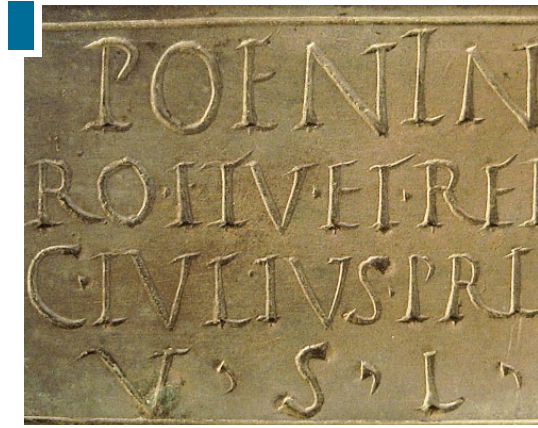 POENIN
RO·ITV·ET·RE
C·IVL·IVS·PRI
V·S·L·